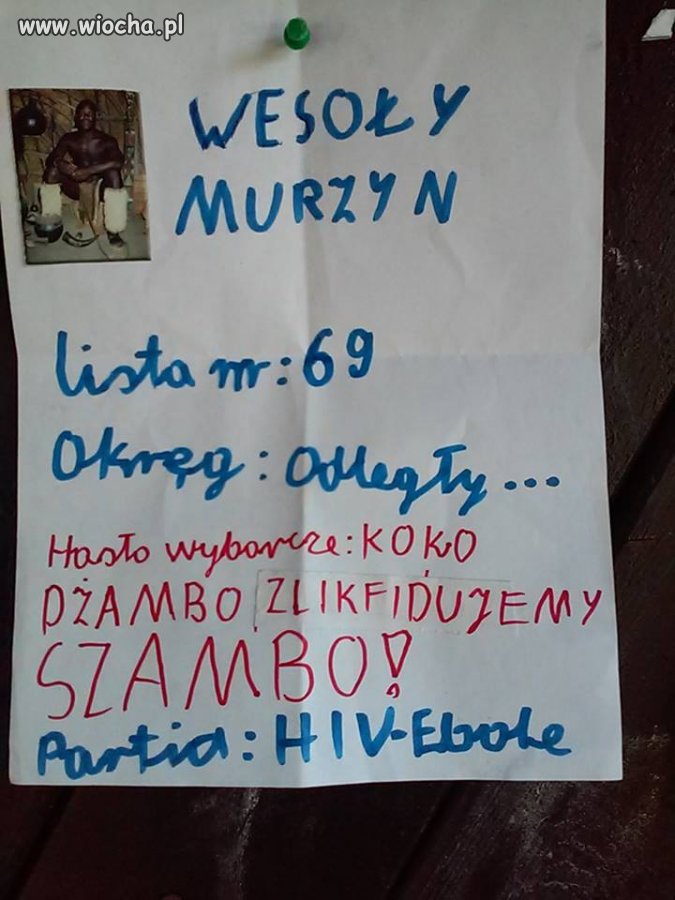 www.wiocha.pl
WESOŁY
MURZYN
Lista nr: 69
Okręg: Odległy...
Hasło wyborcze: KOKO
DŻAMBO, ZLIKFIDUJEMY
SZAMBO!
Partia: HIV-Ebole